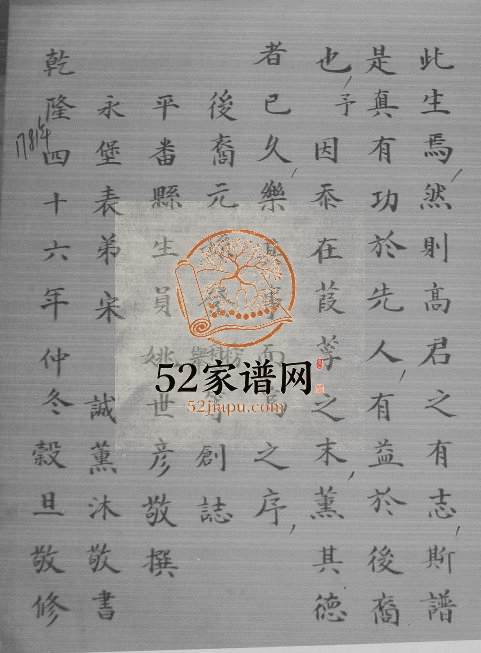 此生焉，然則高君之有志，斯譜
是真有功於先人，有益於後裔
也，予因忝在葭莩之末，薰其德
者已久，樂其事而為之序，
後裔元 創誌
平番縣生員姚世彦敬撰
永堡表弟宋誠薰沐敬書
乾隆四十六年仲冬穀旦敬修
1781年
52家谱网
52jiapu.com